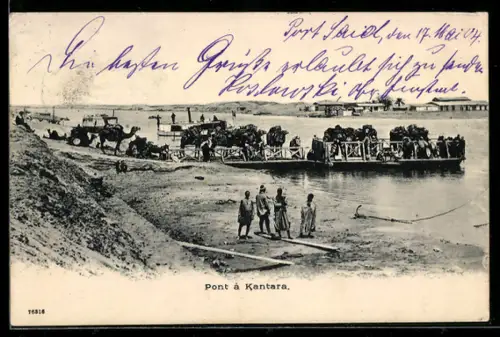 Port Said, den 17. Mai 04
Die besten Grüße erlaubt sich zu senden
Pont à Kantara.
16316